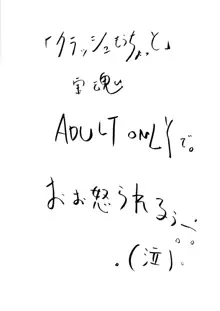 「クラッシュもうちょっと」
宝魂
ADULT ONLYで。
お怒られるぅ〜
(泣)